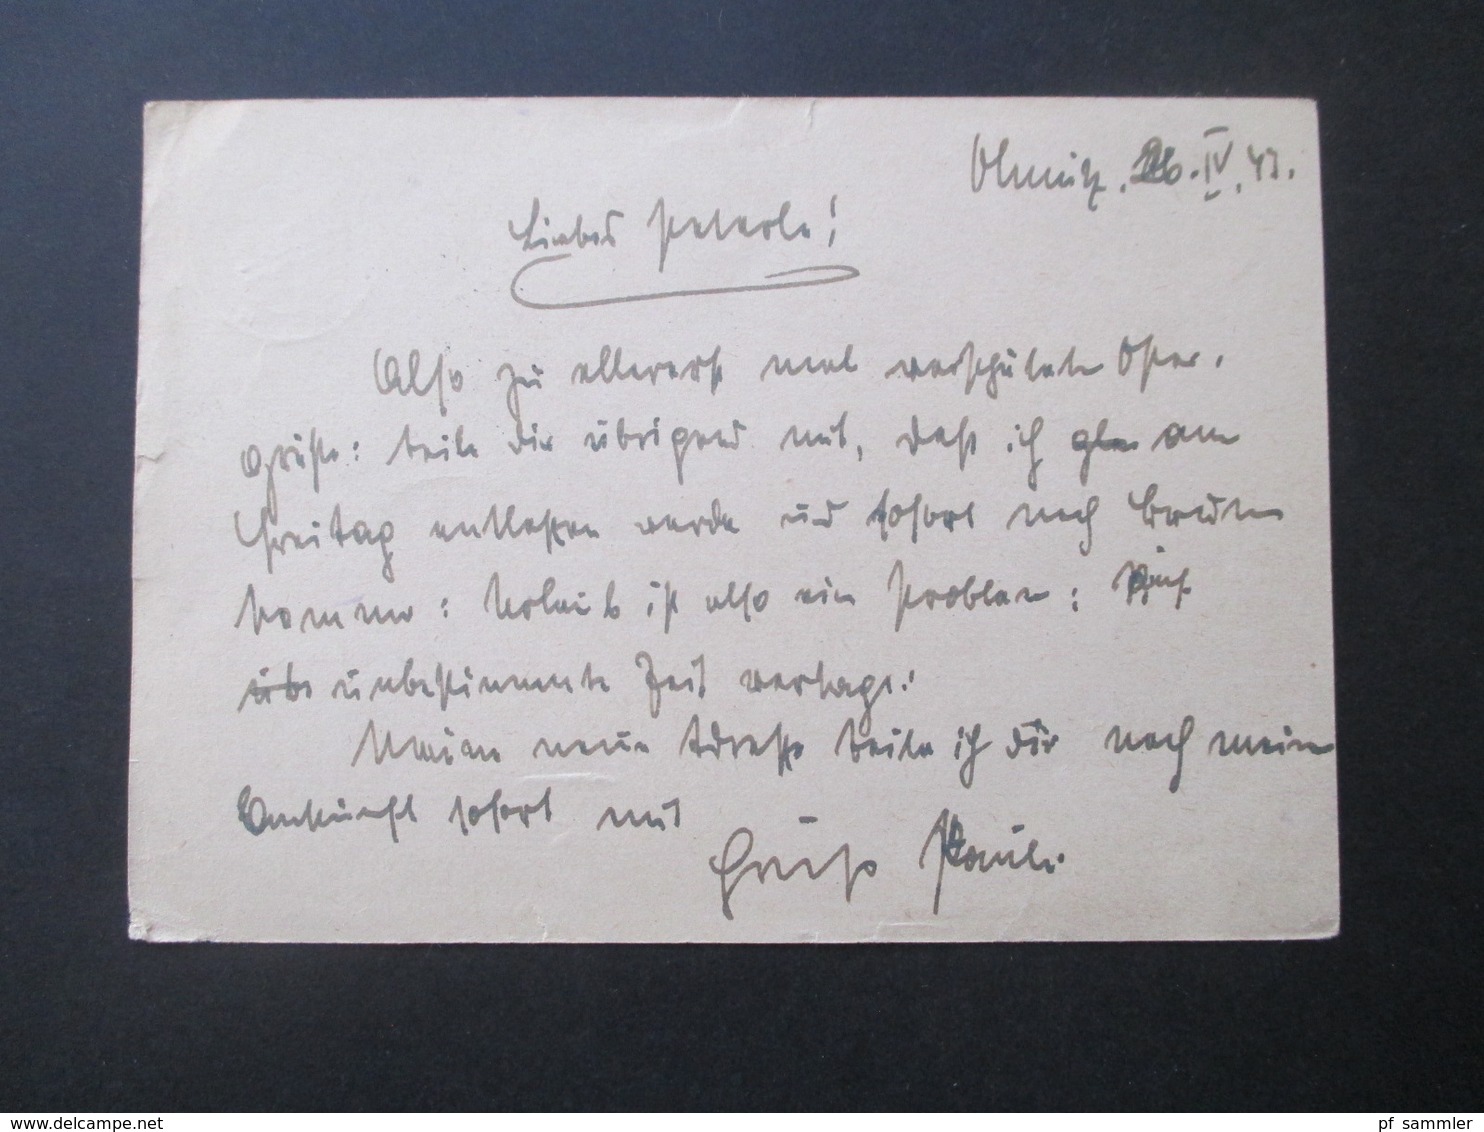 Olmütz, 26. IV. 43.
Liebes Peterle!
Also zu allererst mal verspätete Oster-
grüße: teile dir übrigens mit, daß ich am
Freitag entlassen werde und sofort nach Brünn
komme: Urlaub ist also ein Problem: Auf
unbestimmte Zeit vertagt.
Meine neue Adresse teile ich dir nach meiner
Ankunft sofort mit
Gruß Pauli.
www.delcampe.net
pf_sammler